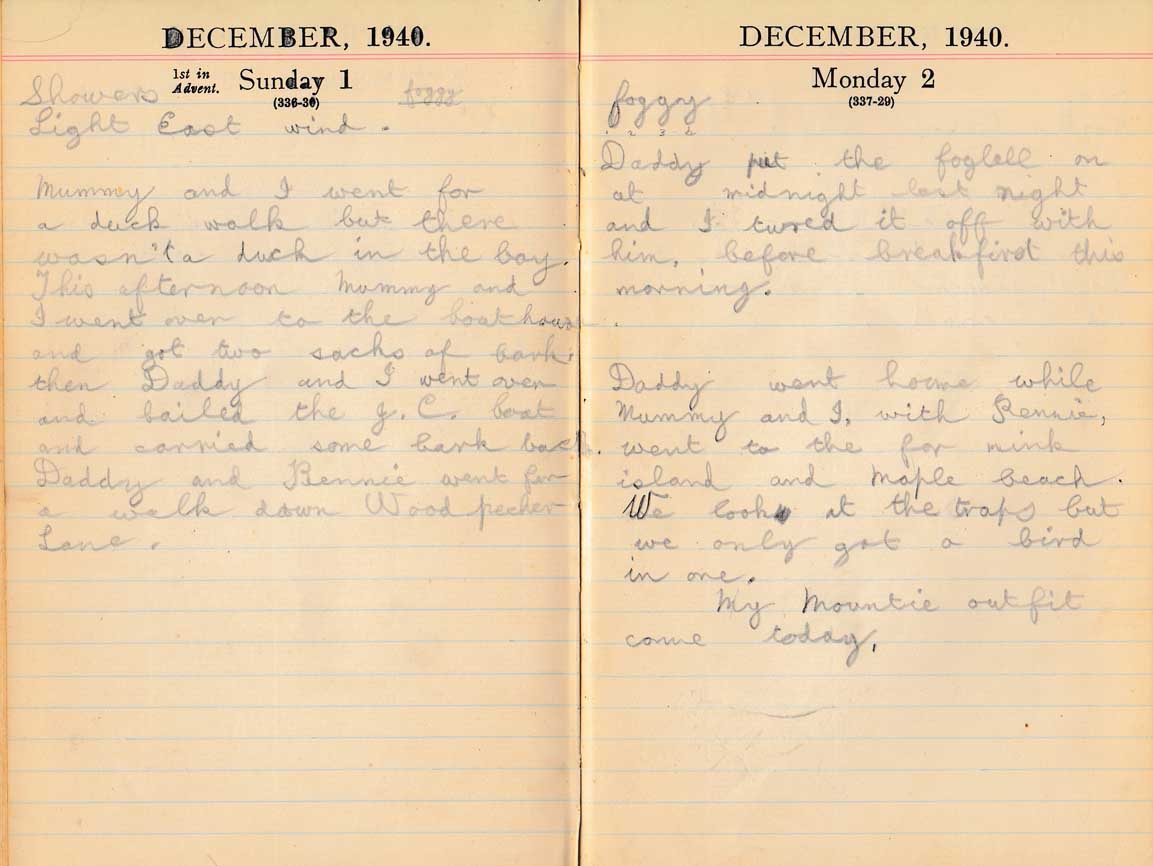 DECEMBER, 1940.
1st in Advent. Sunday 1
(336-30)
Showers foggy
Light East wind.
Mummy and I went for
a duck walk but there
wasn't a duck in the bay.
This afternoon Mummy and
I went over to the boathouse
and got two sacks of bark,
then Daddy and I went over
and bailed the J. C. boat
and carried some bark back.
Daddy and Rennie went for
a walk down Wood pecher
Lane.
DECEMBER, 1940.
Monday 2
(337-29)
foggy
1 2 3 4
Daddy put the fogbell on
at midnight last night
and I tured it off with
him, before breakfirst this
morning.
Daddy went home while
Mummy and I, with Rennie,
went to the far mink
island and Maple beach.
We look at the traps but
we only got a bird
in one.
My Mountie outfit
come today,